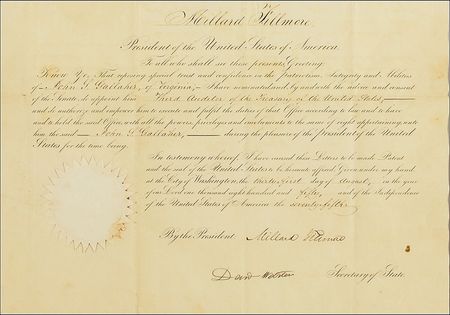 Millard Fillmore,
President of the United States of America,
To all who shall see these presents, Greeting:
Know Ye, That reposing special trust and confidence in the Patriotism, Integrity and Abilities
of John S. Gallaher, of Virginia, I have nominated, and by and with the advice and consent
of the Senate, do appoint him Third Auditor of the Treasury of the United States,
and do authorize and empower him to execute and fulfil the duties of that Office according to law, and to have
and to hold the said Office, with all the powers, privileges and emoluments to the same of right appertaining, unto
him, the said John S. Gallaher, during the pleasure of the President of the United
States for the time being.
In testimony whereof, I have caused these Letters to be made Patent
and the seal of the United States to be hereunto affixed. Given under my hand,
at the City of Washington, the thirty first day of August, in the year
of our Lord one thousand eight hundred and fifty and of the Independence
of the United States of America, the seventy-fifth.
By the President,
Millard Fillmore
Danl Webster
Secretary of State.